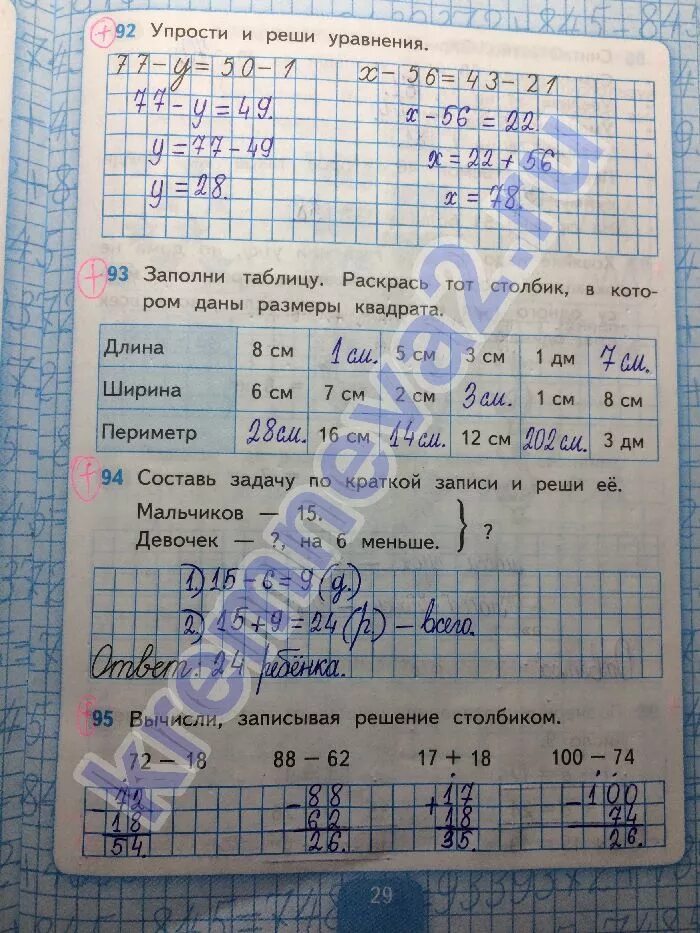 92 Упрости и реши уравнения.
77-у=50-1 х-56=43-21
77-у=49. х-56=22.
у=77-49 х=22+56
у=28. х=78.
93 Заполни таблицу. Раскрась тот столбик, в кото-
ром даны размеры квадрата.
Длина 8 см 1 см. 5 см 3 см 1 дм 7 см.
Ширина 6 см 7 см 2 см 3 см. 1 см 8 см
Периметр 28 см. 16 см 14 см. 12 см 202 см. 3 дм
94 Составь задачу по краткой записи и реши её.
Мальчиков — 15.
Девочек — ?, на 6 меньше. } ?
1) 15-6=9 (д.)
2) 15+9=24 (р.) – всего.
Ответ: 24 ребёнка.
95 Вычисли, записывая решение столбиком.
72 — 18 88 — 62 17 + 18 100 — 74
-72 -88 +17 -100
18 62 18 74
54. 26. 35. 26.
29
kremneva2.ru